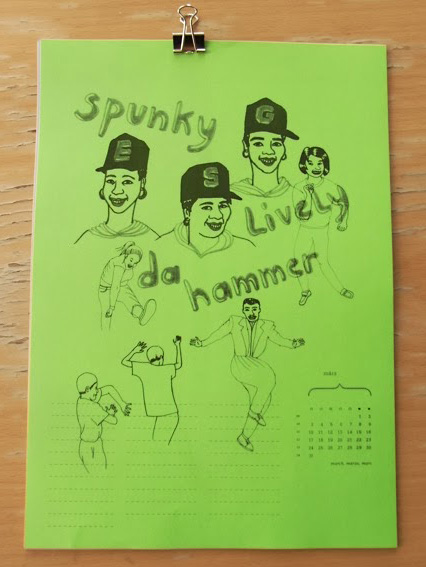 spunky
G
E
S
Lively
da
hammer
märz
1 2
3 4 5 6 7 8 9
10 11 12 13 14 15 16
17 18 19 20 21 22 23
24 25 26 27 28 29 30
31
march, marzo, mars